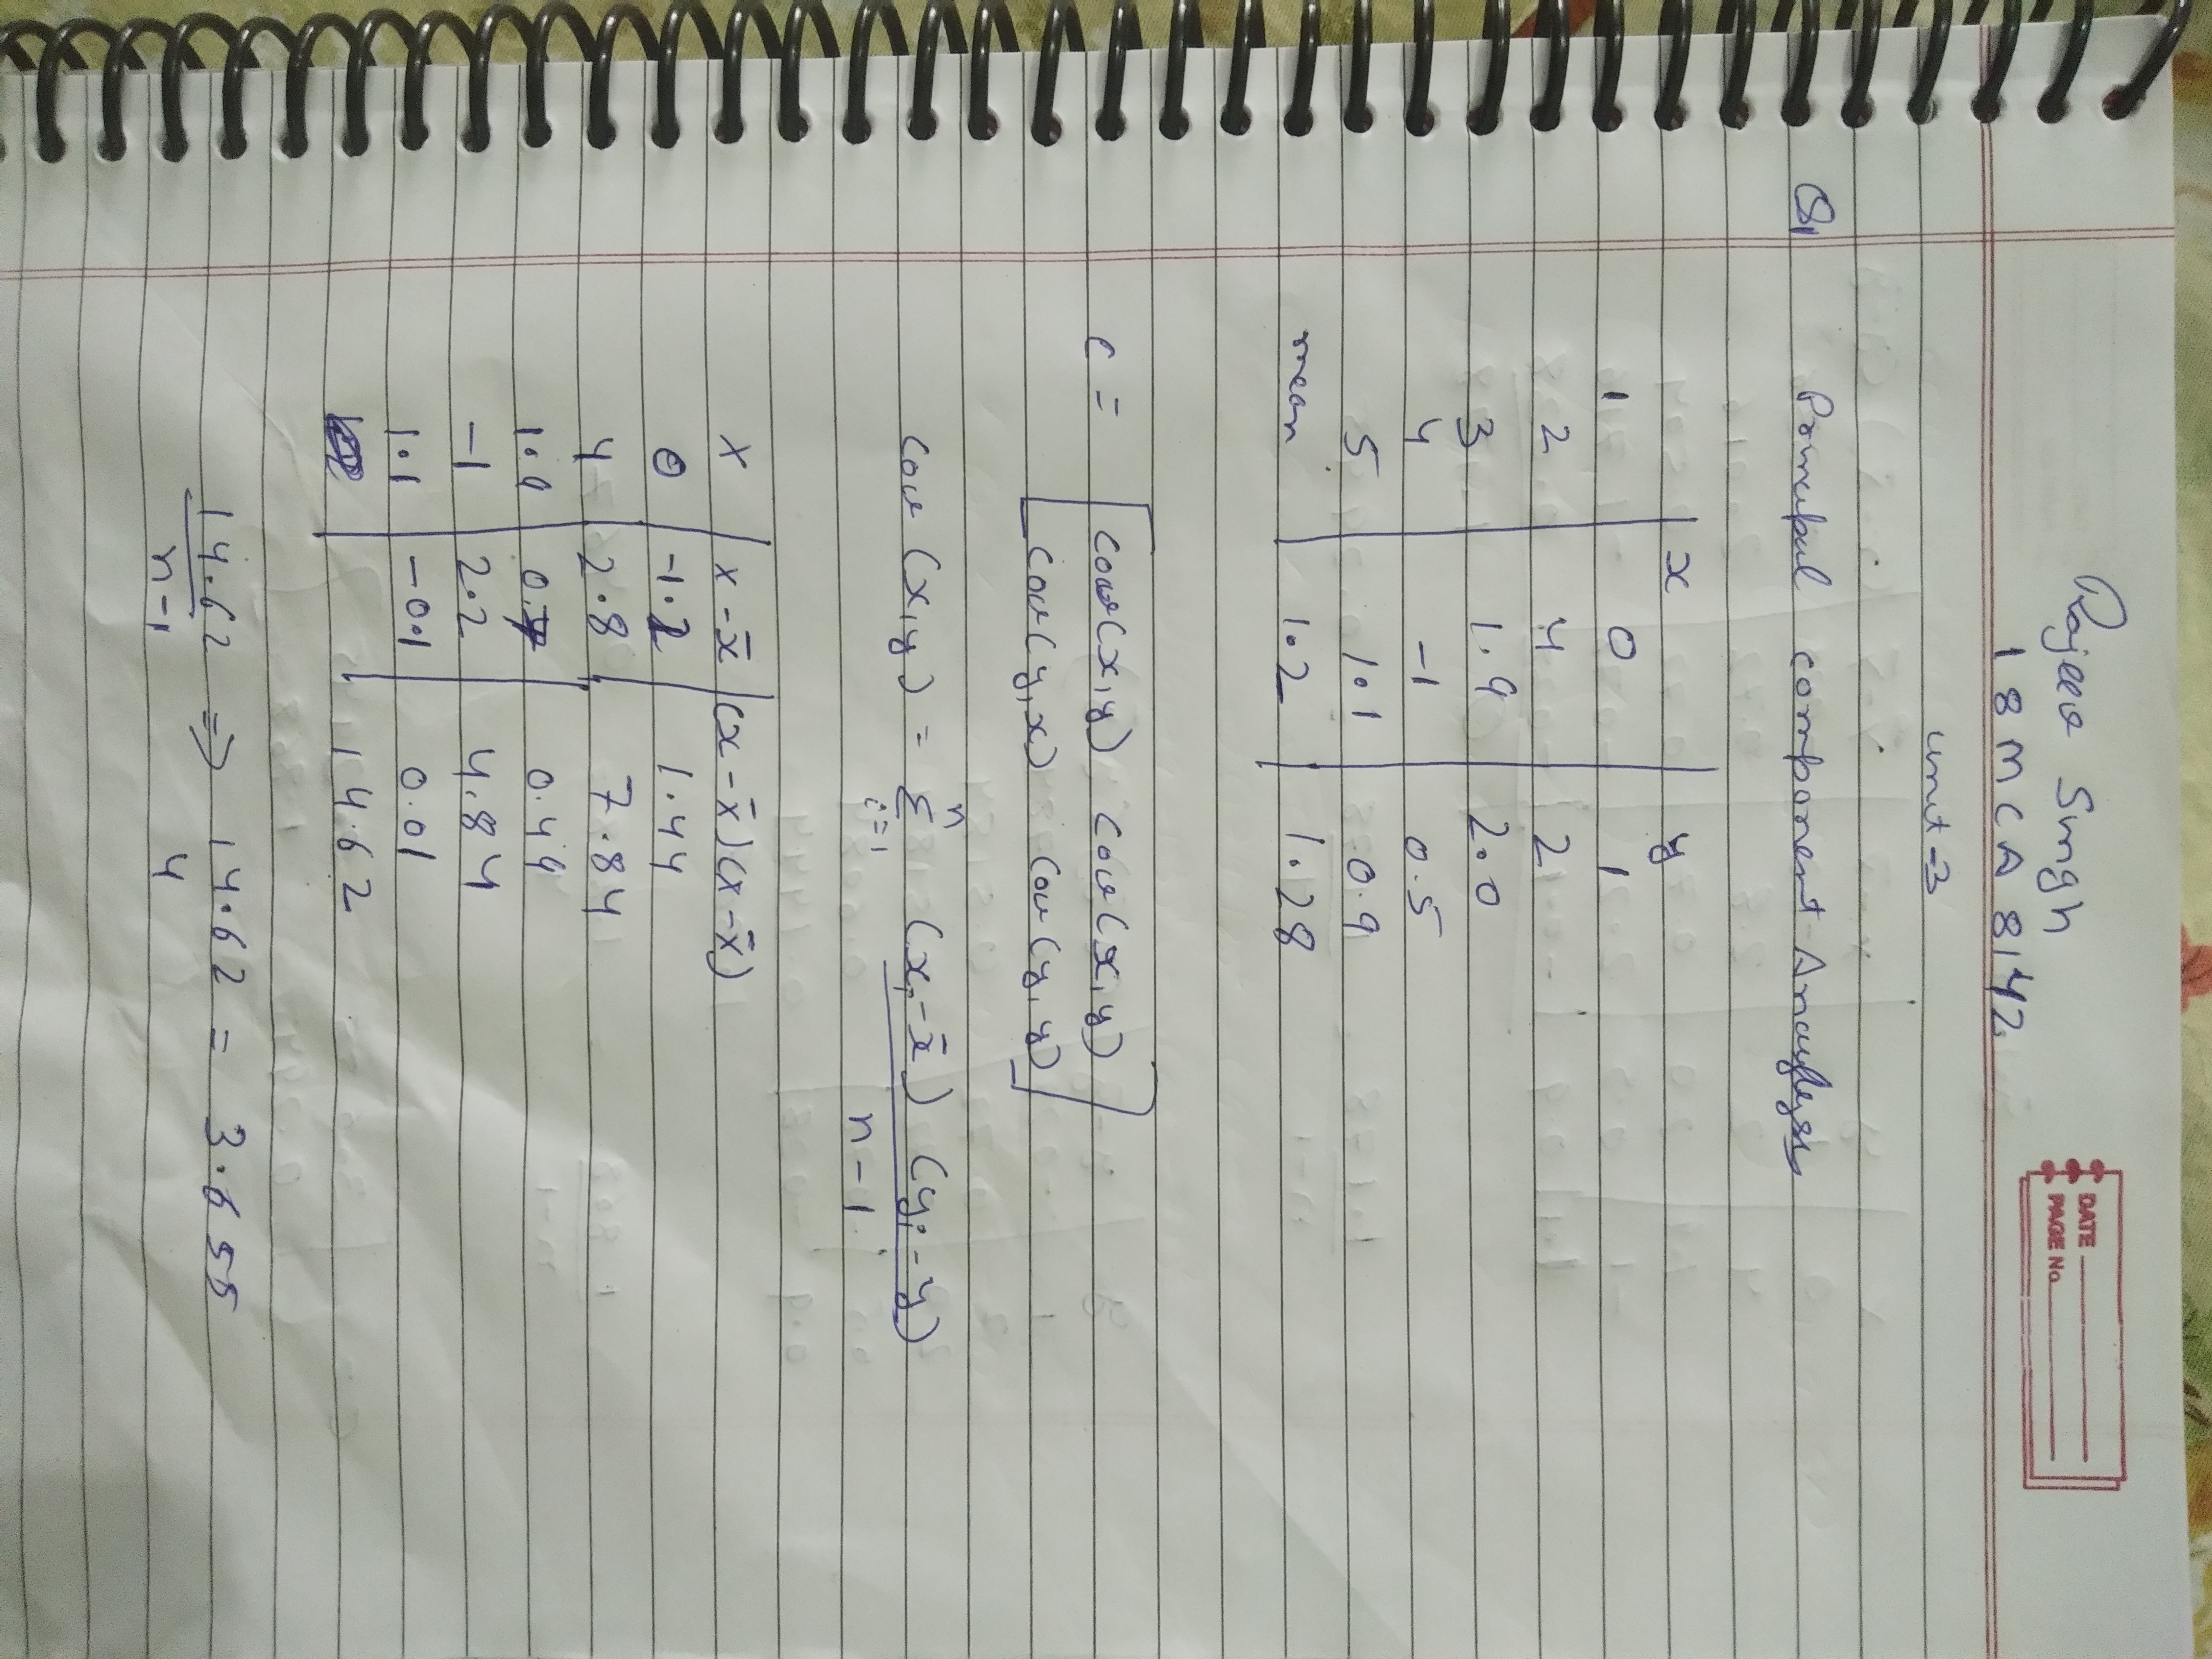 Rajeev Singh
18MCA8142
DATE
PAGE No.
Unit-3
Q1 Principal component Analysis
x y
1 0 1
2 4 2
3 1.9 2.0
4 -1 0.5
5 1.1 0.9
mean 1.2 1.28
C = [cov(x,y) cov(x,y)
cov(y,x) cov(y,y)]
cov (x,y) = n Σ i=1 (xi-x̄) (yi-y) / n-1
x x-x̄ (x-x̄)(x-x̄)
0 -1.2 1.44
4 2.8 7.84
1.9 0.7 0.49
-1 2.2 4.84
1.1 -0.1 0.01
14.62
14.62 ⇒ 14.62 = 3.655
n-1 4